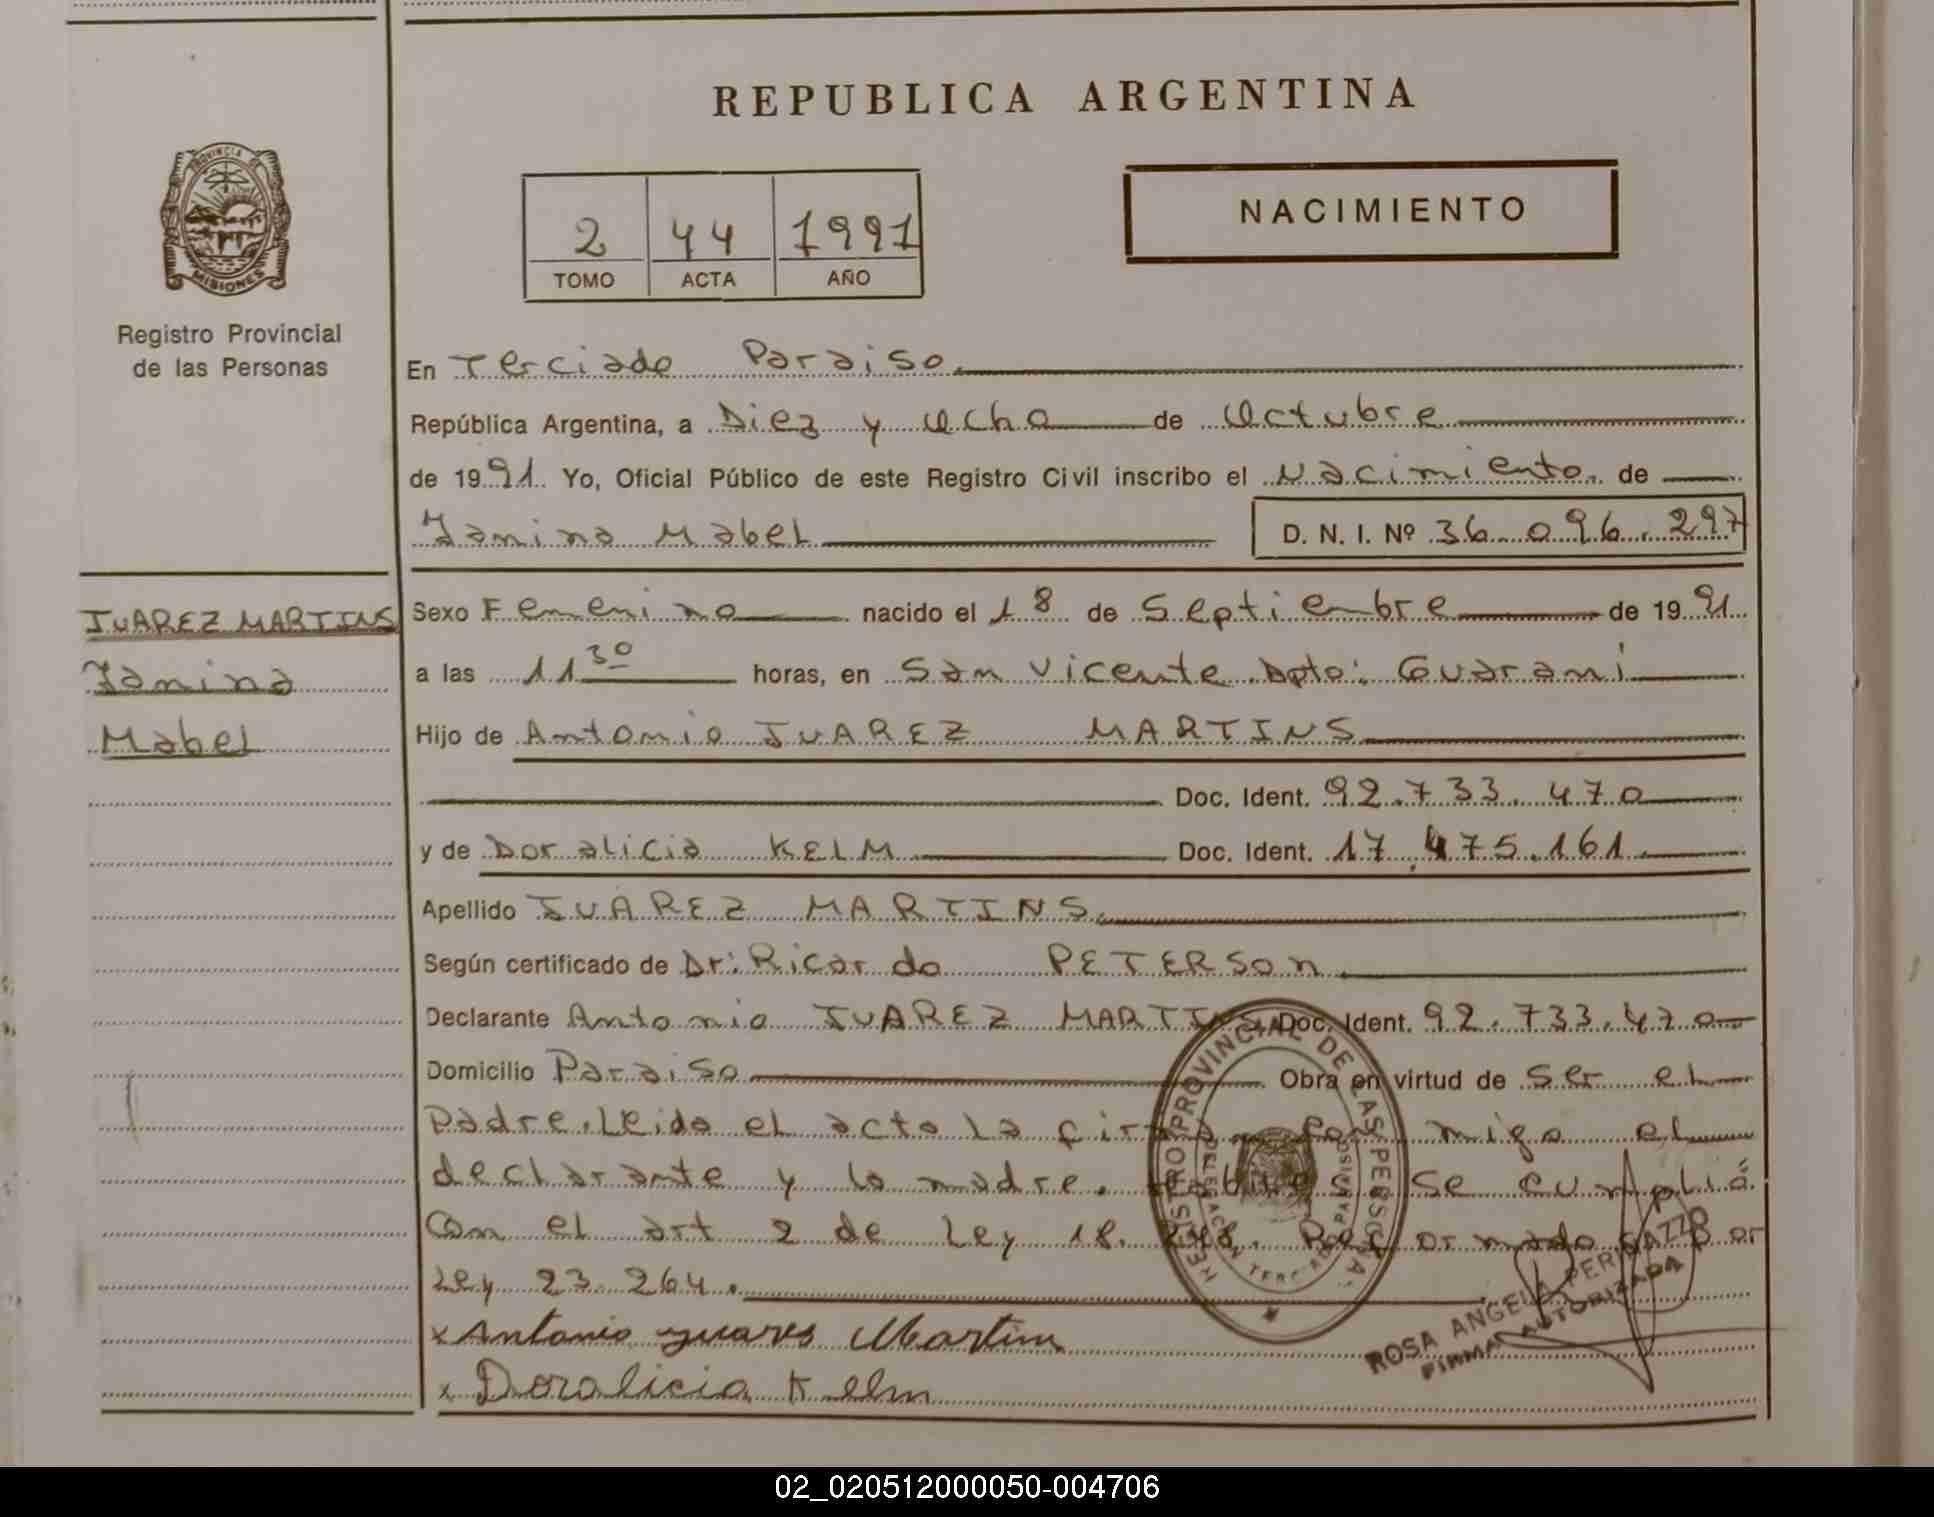 REPUBLICA ARGENTINA
PROVINCIA DE
MISIONES
Registro Provincial
de las Personas
2 44 1991
TOMO ACTA AÑO
NACIMIENTO
En Terciado Paraiso
República Argentina, a Diez y Ocho de Octubre
de 1991. Yo, Oficial Público de este Registro Civil inscribo el Nacimiento de
Janina Mabel D. N. I. Nº 36.096.297
JUAREZ MARTINS
Janina
Mabel
Sexo Femenino nacido el 18 de Septiembre de 1991
a las 11 30 horas, en San Vicente Dpto: Guaraní
Hijo de Antonio JUAREZ MARTINS
Doc. Ident. 92.733.470
y de Doralicia KELM Doc. Ident. 17.475.161
Apellido JUAREZ MARTINS
Según certificado de Dr: Ricardo PETERSON
Declarante Antonio JUAREZ MARTINS Doc. Ident. 92.733.470
Domicilio Paraiso Obra en virtud de Ser el
Padre. Leida el acta la firman con migo el
declarante y la madre. Se cumplió
Con el art 2 de Ley 18.248. Reformado Por
Ley 23.264.
x Antonio Juares Martins
x Doralicia Kelm
REGISTRO PROVINCIAL DE LAS PERSONAS
ROSA ANGELA
FIRMA AUTORIZADA
02_020512000050-004706